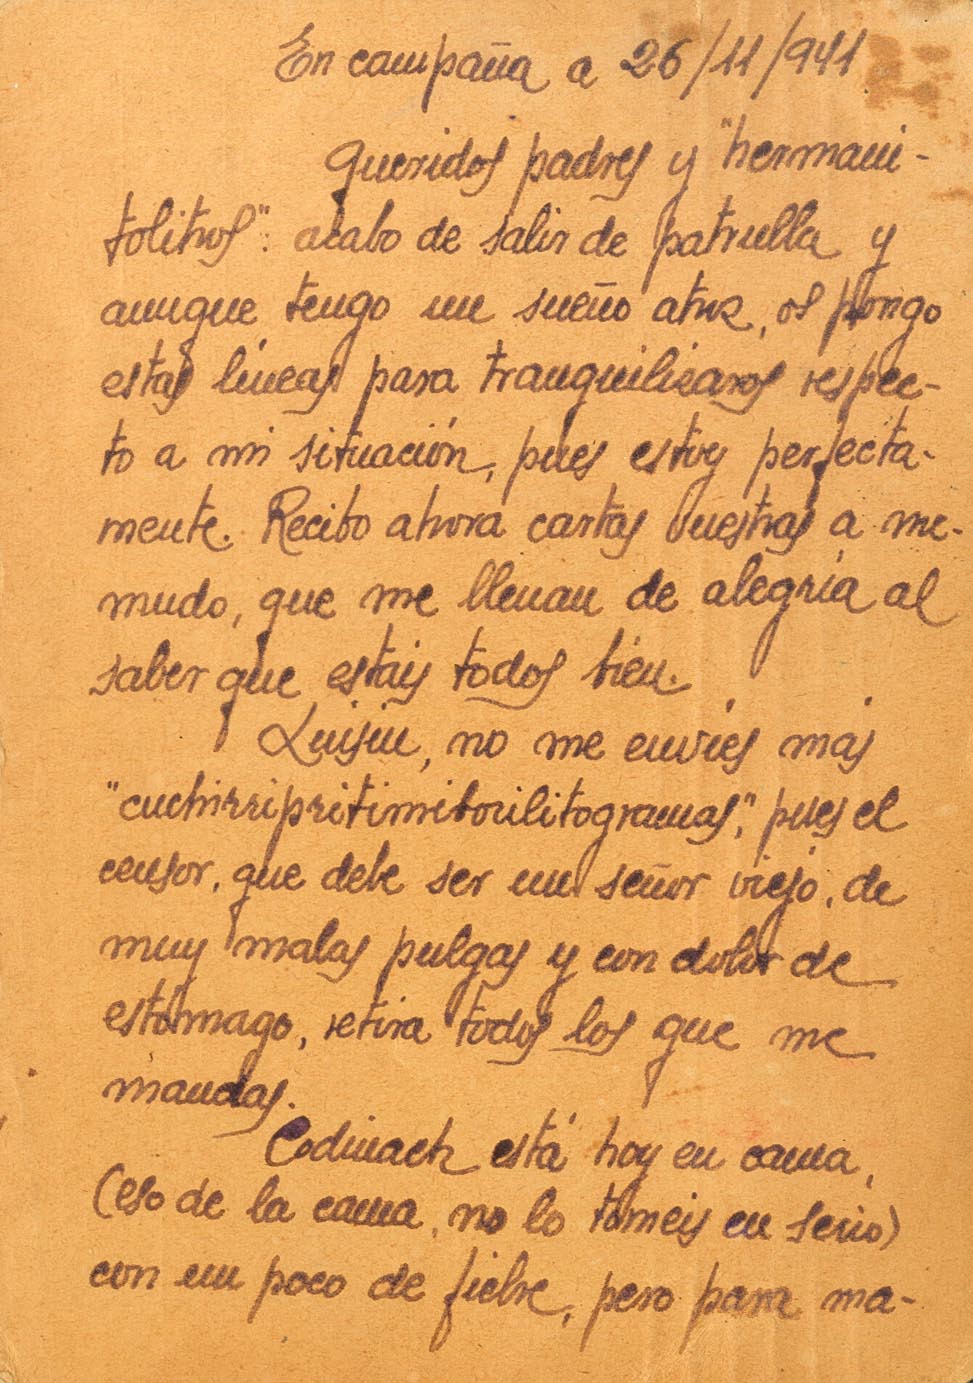 En campaña a 26/11/941
Queridos padres y "hermani-
tolitros": acabo de salir de patrulla y
aunque tengo un sueño atroz, os pongo
estas líneas para tranquilizaros respec-
to a mi situación, pues estoy perfecta-
mente. Recibo ahora cartas vuestras a me-
nudo, que me llenan de alegría al
saber que estáis todos bien.
Luisin, no me envíes más
"cuchirripritimitorilitogramas", pues el
censor, que debe ser un señor viejo, de
muy malas pulgas y con dolor de
estómago, retira todos los que me
mandas.
Codinach está hoy en cama,
(eso de la cama, no lo toméis en serio)
con un poco de fiebre, pero para ma-